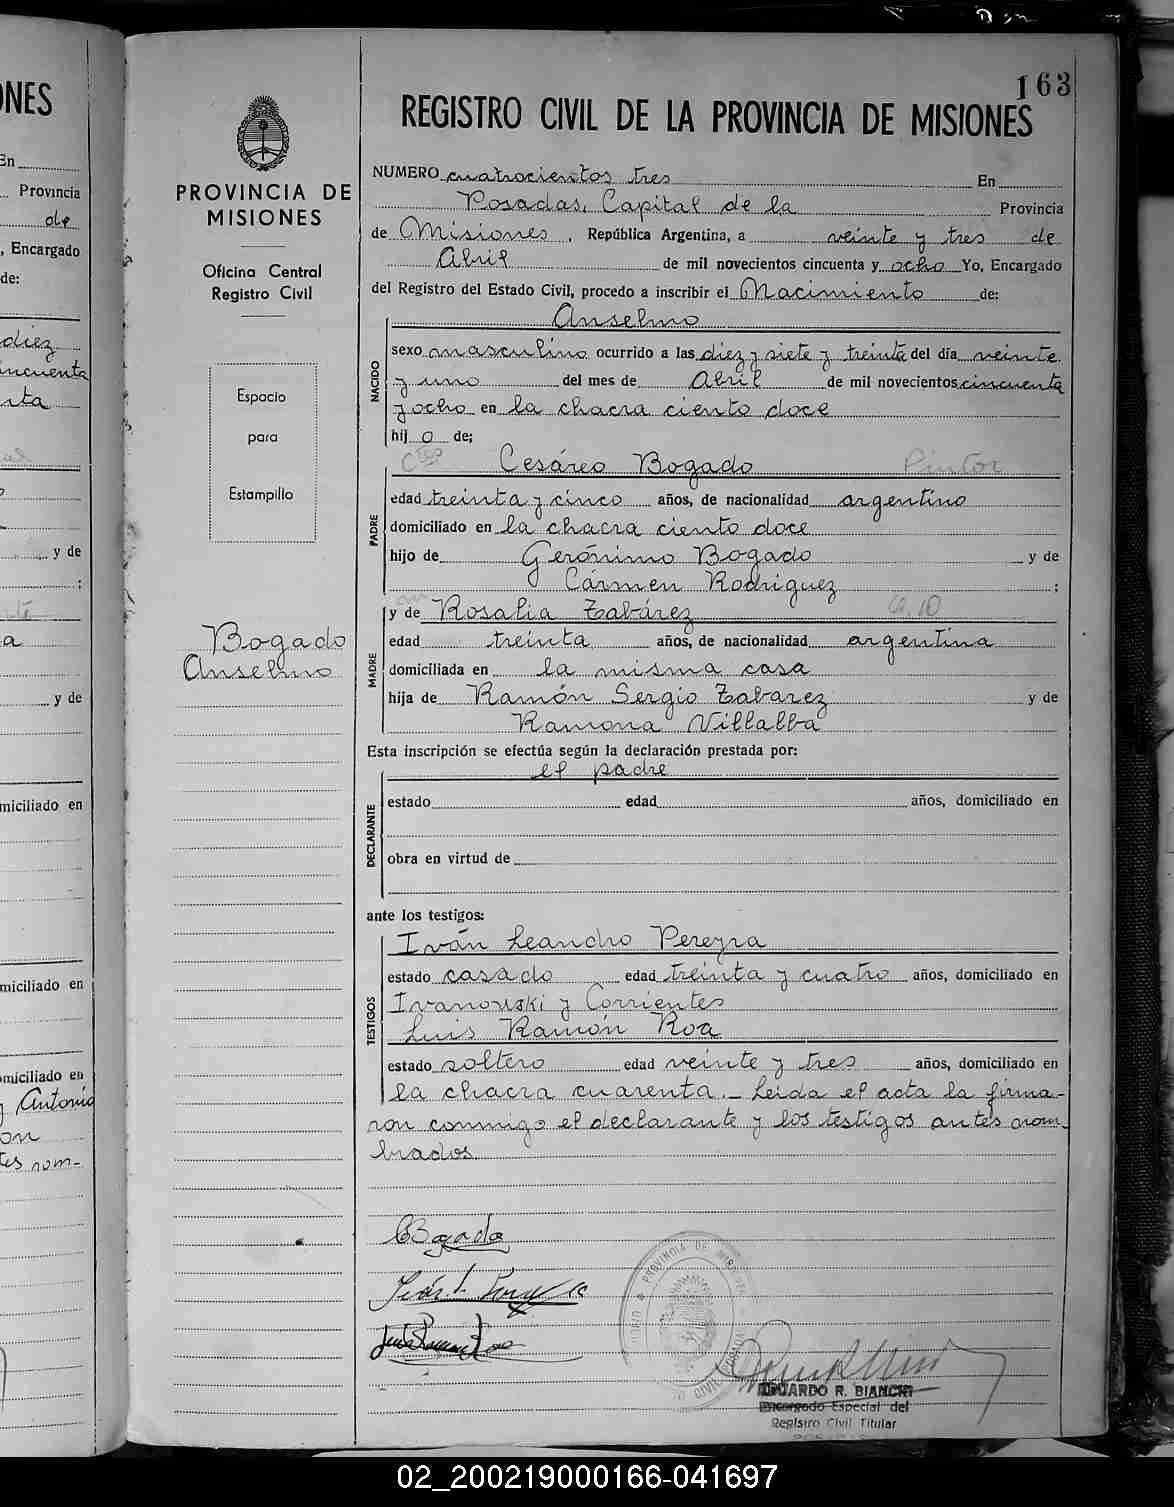 163
REGISTRO CIVIL DE LA PROVINCIA DE MISIONES
PROVINCIA DE
MISIONES
Oficina Central
Registro Civil
Espacio
para
Estampillo
Bogado
Anselmo
NUMERO cuatrocientos tres En
Posadas, Capital de la Provincia
de Misiones, República Argentina, a veinte y tres de
Abril de mil novecientos cincuenta y ocho Yo, Encargado
del Registro del Estado Civil, procedo a inscribir el Nacimiento de:
Anselmo
NACIDO
sexo masculino ocurrido a las diez y siete y treinta del día veinte
y uno del mes de Abril de mil novecientos cincuenta
y ocho en la chacra ciento doce
hijo de;
Ctes Cesáreo Bogado Pintor
PADRE
edad treinta y cinco años, de nacionalidad argentino
domiciliado en la chacra ciento doce
hijo de Gerónimo Bogado y de
Cármen Rodriguez ;
y de Rosalia Tabárez
MADRE
edad treinta años, de nacionalidad argentina
domiciliada en la misma casa
hija de Ramón Sergio Tabarez y de
Ramona Villalba
Esta inscripción se efectúa según la declaración prestada por:
el padre
DECLARANTE
estado edad años, domiciliado en
obra en virtud de
ante los testigos:
Iván Leandro Pereyra
TESTIGOS
estado casado edad treinta y cuatro años, domiciliado en
Ivanouski y Corrientes
Luis Ramón Roa
estado soltero edad veinte y tres años, domiciliado en
la chacra cuarenta._ Leida el acta la firma-
ron conmigo el declarante y los testigos antes nom-
brados.
CBogado
EDUARDO R. BIANCHI
Encargado Especial del
Registro Civil Titular
ONES
En
Provincia
de
, Encargado
de:
diez
incuenta
nta
y de
;
a
y de
miciliado en
miciliado en
omiciliado en
y Antonio
on
tes nom-
02_200219000166-041697